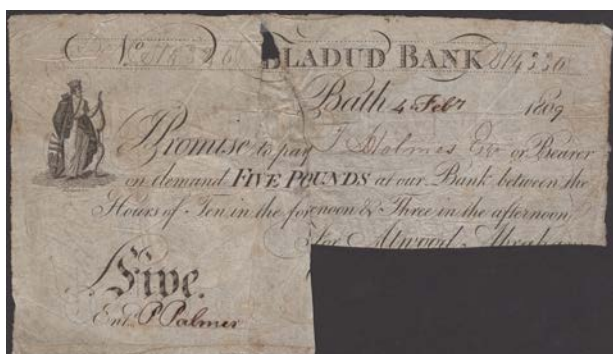 No BLADUD BANK
Bath 4 Feby 1809
I Promise to pay T Holmes Esqr or Bearer
on demand FIVE POUNDS at our Bank between the
Hours of Ten in the forenoon & Three in the afternoon
For Atwood
Five.
Entd. P Palmer